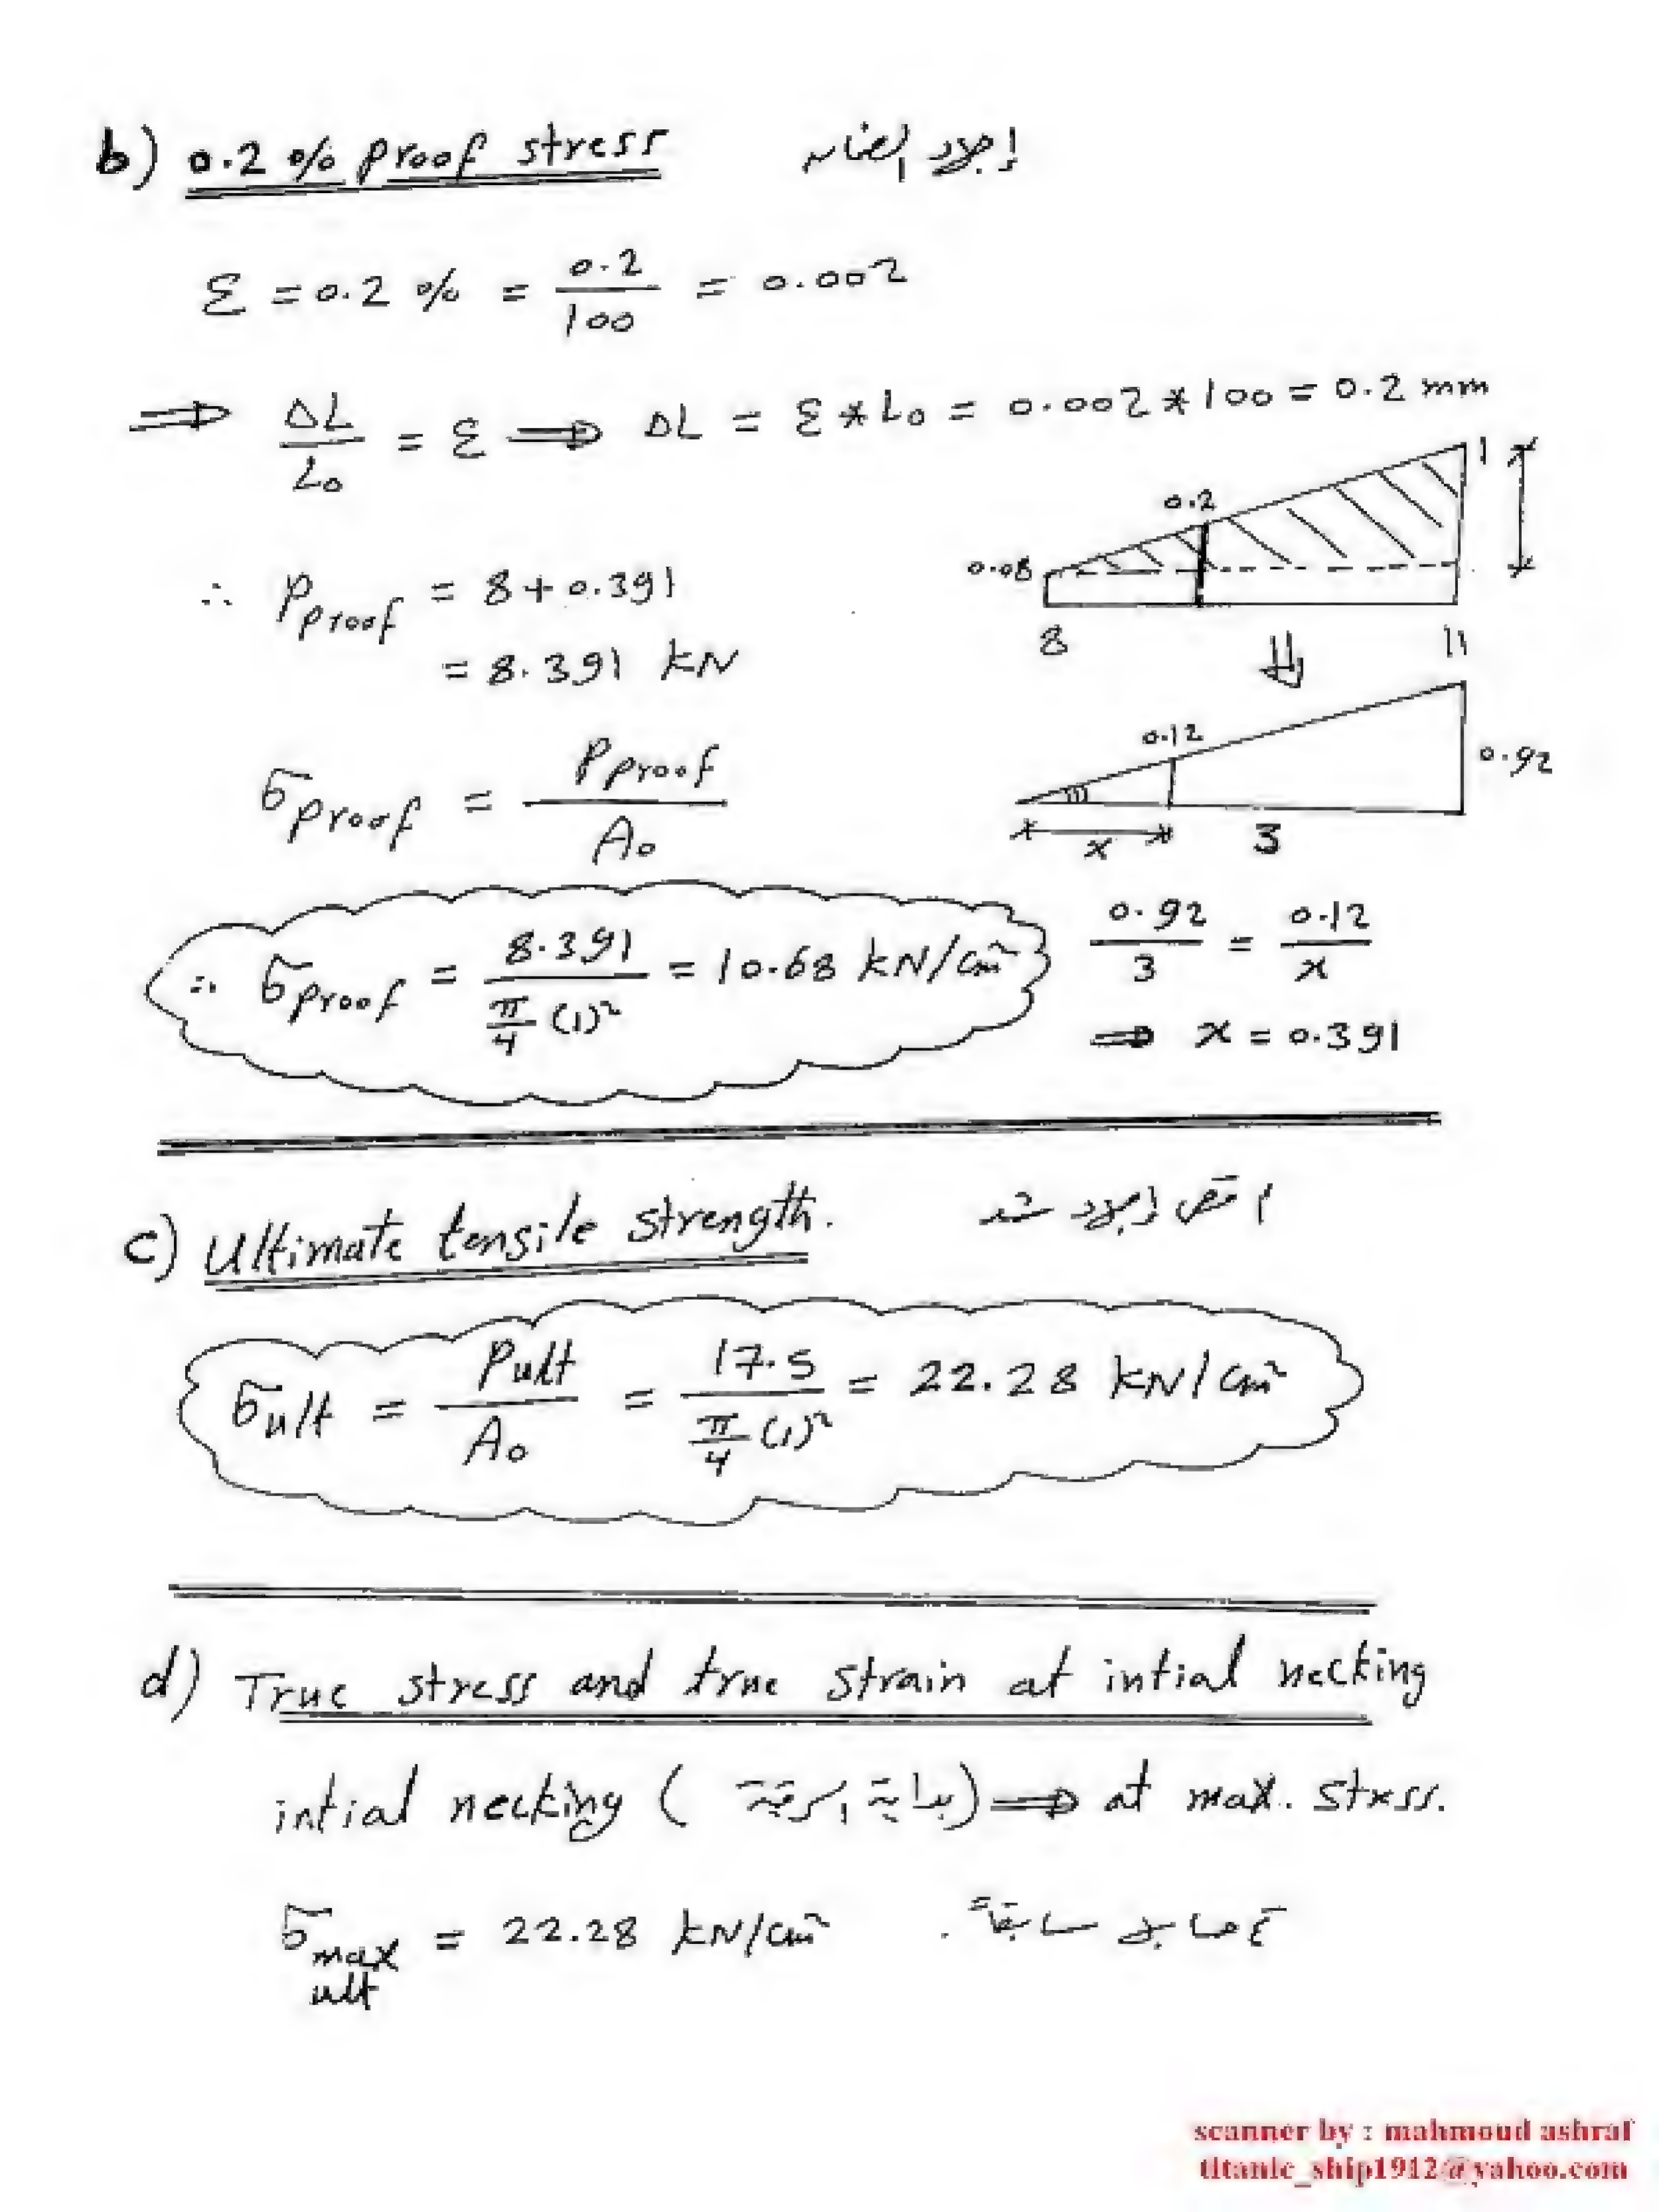 b) 0.2 % proof stress إجهاد الضمان
ε = 0.2 % = 0.2/100 = 0.002
⇒ ΔL/L₀ = ε ⇒ ΔL = ε * L₀ = 0.002 * 100 = 0.2 mm
0.08 0.2 1
8 11
∴ P proof = 8 + 0.391
= 8.391 kN
0.12 0.92
x 3
σ proof = P proof / A₀
0.92/3 = 0.12/x
⇒ x = 0.391
∴ σ proof = 8.391 / (π/4 (1)²) = 10.68 kN/cm²
c) Ultimate tensile strength. أقصى إجهاد شد
σ ult = P ult / A₀ = 17.5 / (π/4 (1)²) = 22.28 kN/cm²
d) True stress and true strain at intial necking
intial necking (بداية الرقبة) ⇒ at max. stress.
σ max ult = 22.28 kN/cm² سابقاً.
scanner by : mahmoud ashraf
titanic_ship1912@yahoo.com